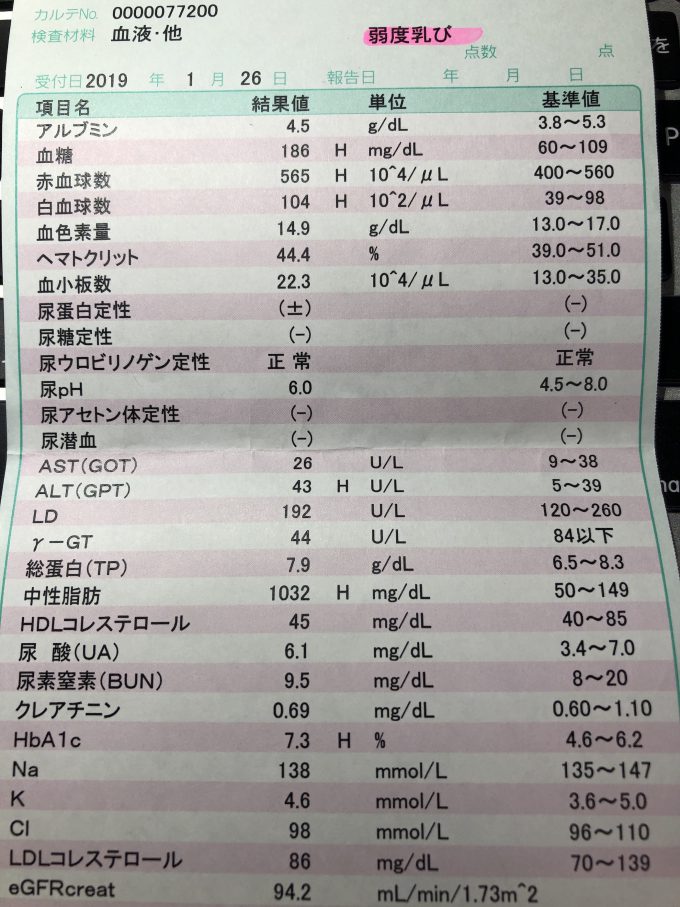 カルテNo. 0000077200
検査材料 血液・他 弱度乳び
点数 点
受付日 2019 年 1 月 26 日 報告日 年 月 日
項目名 結果値 単位 基準値
アルブミン 4.5 g/dL 3.8～5.3
血糖 186 H mg/dL 60～109
赤血球数 565 H 10^4/μL 400～560
白血球数 104 H 10^2/μL 39～98
血色素量 14.9 g/dL 13.0～17.0
ヘマトクリット 44.4 % 39.0～51.0
血小板数 22.3 10^4/μL 13.0～35.0
尿蛋白定性 (±) (-)
尿糖定性 (-) (-)
尿ウロビリノゲン定性 正常 正常
尿pH 6.0 4.5～8.0
尿アセトン体定性 (-) (-)
尿潜血 (-) (-)
AST(GOT) 26 U/L 9～38
ALT(GPT) 43 H U/L 5～39
LD 192 U/L 120～260
γ-GT 44 U/L 84以下
総蛋白(TP) 7.9 g/dL 6.5～8.3
中性脂肪 1032 H mg/dL 50～149
HDLコレステロール 45 mg/dL 40～85
尿 酸(UA) 6.1 mg/dL 3.4～7.0
尿素窒素(BUN) 9.5 mg/dL 8～20
クレアチニン 0.69 mg/dL 0.60～1.10
HbA1c 7.3 H % 4.6～6.2
Na 138 mmol/L 135～147
K 4.6 mmol/L 3.6～5.0
Cl 98 mmol/L 96～110
LDLコレステロール 86 mg/dL 70～139
eGFRcreat 94.2 mL/min/1.73m^2
を
P